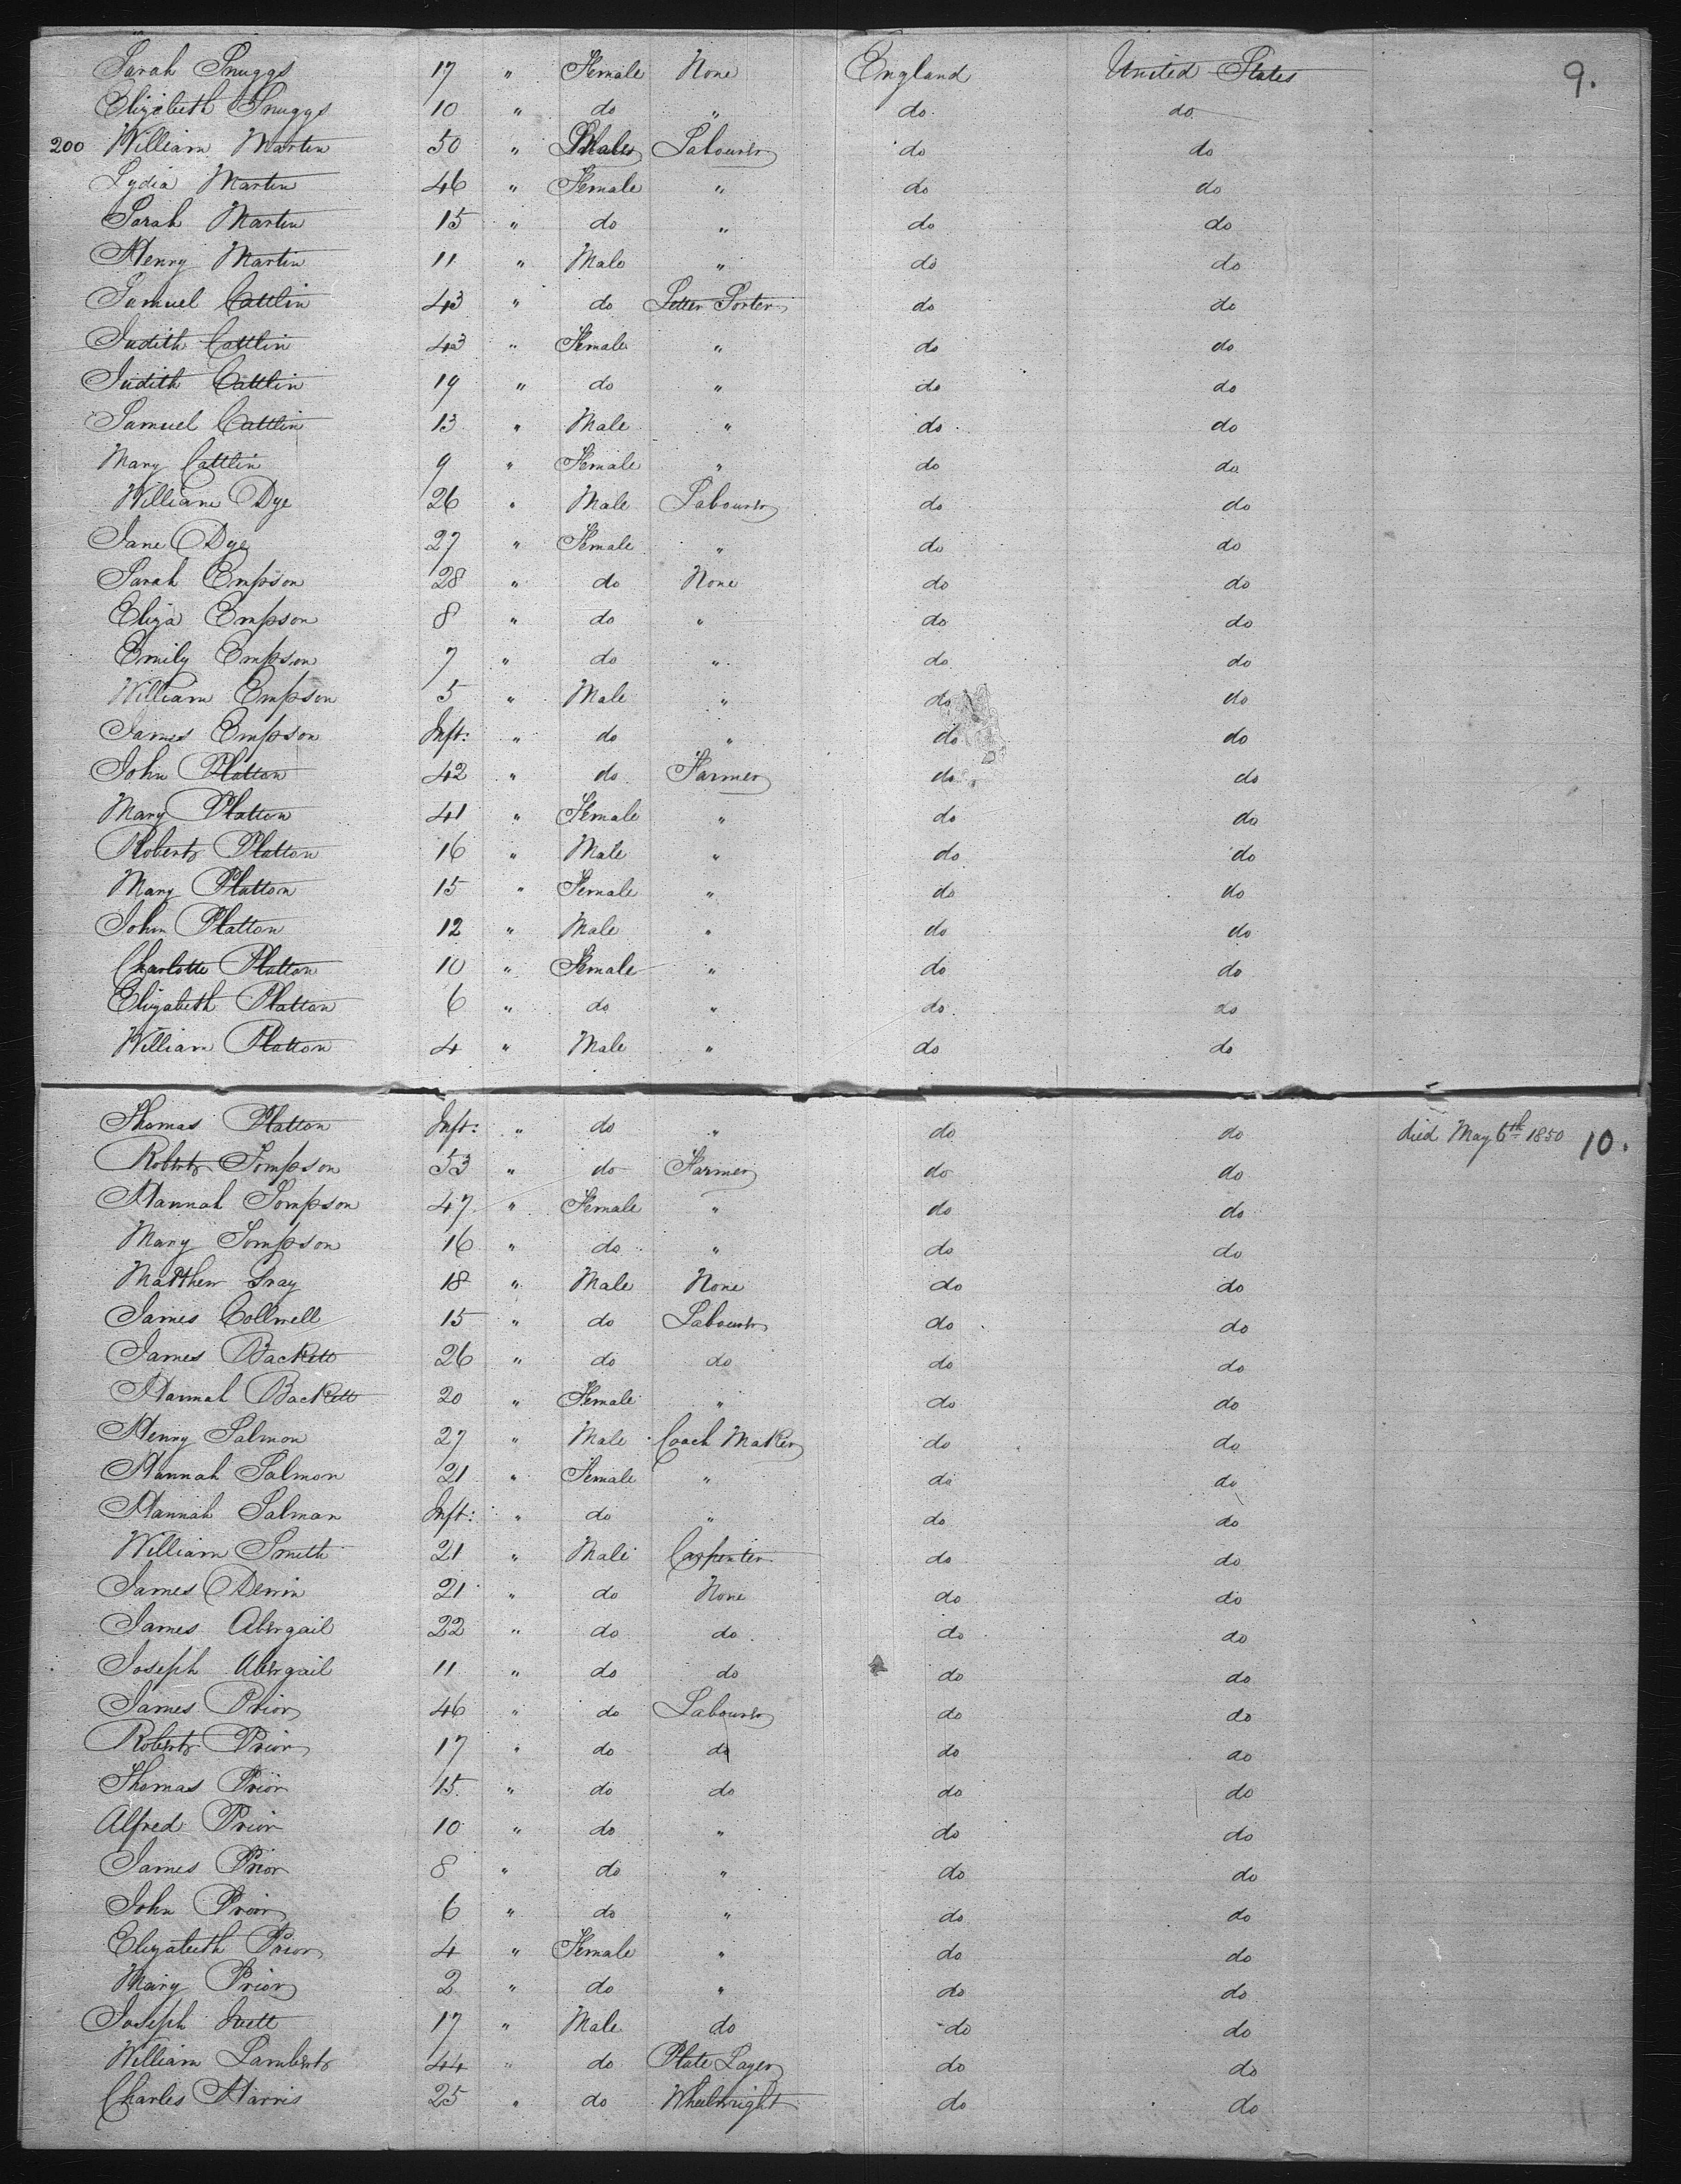 Sarah Snuggs 17 " Female None England United States 9.
Elizabeth Snuggs 10 " do " do do
200 William Martin 50 " Male Labourer do do
Lydia Martin 46 " Female " do do
Sarah Martin 15 " do " do do
Henry Martin 11 " Male " do do
Samuel Cattlin 43 " do Letter Sorter do do
Judith Cattlin 43 " Female " do do
Judith Cattlin 19 " do " do do
Samuel Cattlin 13 " Male " do do
Mary Cattlin 9 " Female " do do
William Dye 26 " Male Labourer do do
Jane Dye 27 " Female " do do
Sarah Empson 28 " do None do do
Eliza Empson 8 " do " do do
Emily Empson 7 " do " do do
William Empson 5 " Male " do do
James Empson Inft: " do " do do
John Platton 42 " do Farmer do do
Mary Platton 41 " Female " do do
Robert Platton 16 " Male " do do
Mary Platton 15 " Female " do do
John Platton 12 " Male " do do
Charlotte Platton 10 " Female " do do
Elizabeth Platton 6 " do " do do
William Platton 4 " Male " do do
Thomas Platton Inft: " do " do do died May 6th 1850 10.
Robert Tompson 53 " do Farmer do do
Hannah Tompson 47 " Female " do do
Mary Tompson 16 " do " do do
Matthew Gray 18 " Male None do do
James Collwell 15 " do Labourer do do
James Backett 26 " do do do do
Hannah Backett 20 " Female " do do
Henry Salmon 27 " Male Coach Maker do do
Hannah Salmon 21 " Female " do do
Hannah Salman Inft: " do " do do
William Smith 21 " Male Carpenter do do
James 21 " do None do do
James Abergail 22 " do do do do
Joseph Abergail 11 " do do do do
James Prior 46 " do Labourer do do
Robert Prior 17 " do do do do
Thomas Prior 15 " do do do do
Alfred Prior 10 " do " do do
James Prior 8 " do " do do
John Prior 6 " do " do do
Elizabeth Prior 4 " Female " do do
Mary Prior 2 " do " do do
Joseph 17 " Male do do do
William Lambert 44 " do Plate Layer do do
Charles Harris 25 " do Wheelwright do do